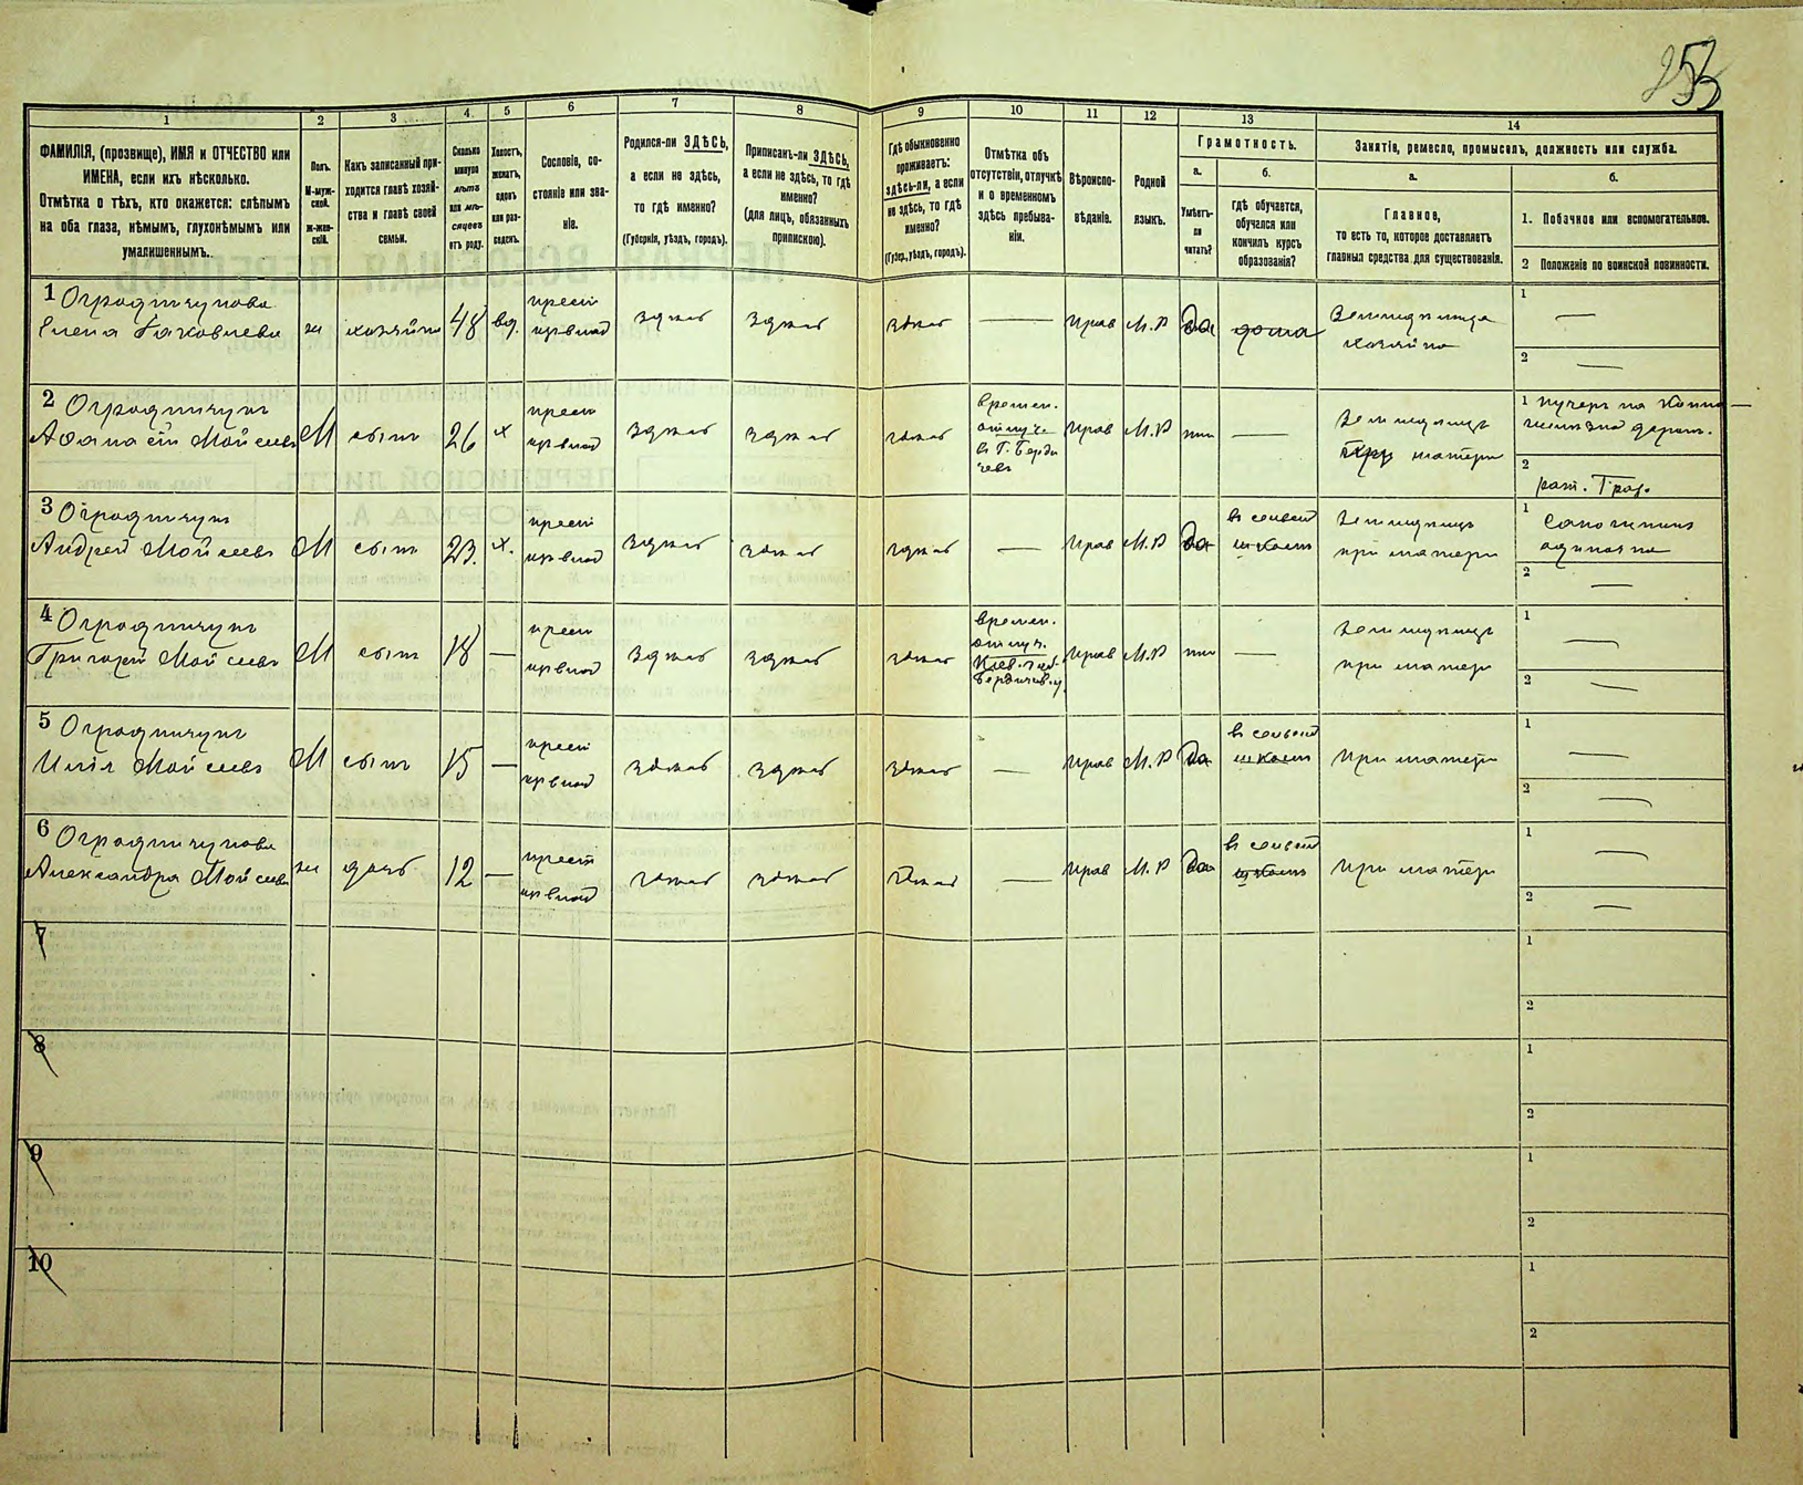 253
1
2
3
4
5
6
7
8
9
10
11
12
13
14
ФАМИЛІЯ, (прозвище), ИМЯ и ОТЧЕСТВО или
ИМЕНА, если ихъ нѣсколько.
Отмѣтка о тѣхъ, кто окажется: слѣпымъ
на оба глаза, нѣмымъ, глухонѣмымъ или
умалишеннымъ.
Полъ.
М-муж-
ской.
ж-жен-
скій.
Какъ записанный при-
ходится главѣ хозяй-
ства и главѣ своей
семьи.
Сколько
минуло
лѣтъ
или мѣ-
сяцевъ
отъ роду.
Холостъ,
женатъ,
вдовъ
или раз-
веденъ.
Сословіе, со-
стояніе или зва-
ніе.
Родился-ли ЗДѢСЬ,
а если не здѣсь,
то гдѣ именно?
(Губернія, уѣздъ, городъ).
Приписанъ-ли ЗДѢСЬ,
а если не здѣсь, то гдѣ
именно?
(для лицъ, обязанныхъ
припискою).
Гдѣ обыкновенно
проживаетъ:
здѣсь-ли, а если
не здѣсь, то гдѣ
именно?
(Губер., уѣздъ, городъ).
Отмѣтка объ
отсутствіи, отлучкѣ
и о временномъ
здѣсь пребыва-
ніи.
Вѣроиспо-
вѣданіе.
Родной
языкъ.
Грамотность.
а.
Умѣетъ-
ли
читать?
б.
Гдѣ обучается,
обучался или
кончилъ курсъ
образованія?
Занятіе, ремесло, промыселъ, должность или служба.
а.
Главное,
то есть то, которое доставляетъ
главныя средства для существованія.
б.
1. Побочное или вспомогательное.
2 Положеніе по воинской повинности.
1 Оградничукова
Елена Яковлева ж хозяйка 48 вд. крест здѣсь здѣсь здѣсь — прав М.Р да дома Земледѣлица
хозяйка
1 —
2 —
2 Оградничукъ
Афанасій Моисеевъ М сынъ 26 х крест здѣсь здѣсь здѣсь
времен.
отлуч.
въ Г. Берди
чевъ
прав М.Р нѣт — Земледѣлецъ
при матери
1 кучеръ на конно
желѣзной дорогѣ.
2
рат.
3 Оградничукъ
Андрей Моисеевъ М сынъ 23. х. крест здѣсь здѣсь здѣсь — прав М.Р да
въ сельской
школѣ
Земледѣлецъ
при матери
1 Сапожникъ
одиночка
2 —
4 Оградничукъ
Григорій Моисеевъ М сынъ 18 — крест здѣсь здѣсь здѣсь
времен.
отлуч.
Кіев. губ.
Бердичев. у.
прав М.Р нѣт — Земледѣлецъ
при матери
1 —
2 —
5 Оградничукъ
Илія Моисеевъ М сынъ 15 — крест здѣсь здѣсь здѣсь — прав М.Р да
въ сельской
школѣ
при матери
1 —
2 —
6 Оградничукова
Александра Моисеева ж дочь 12 — крест здѣсь здѣсь здѣсь — прав М.Р да
въ сельской
школѣ
при матери
1 —
2 —
7
1
2
8
1
2
9
1
2
10
1
2